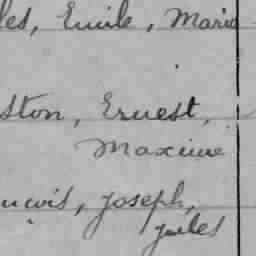 les, Emile, Marie
ston, Ernest,
Maxime
ncois, Joseph,
Jules